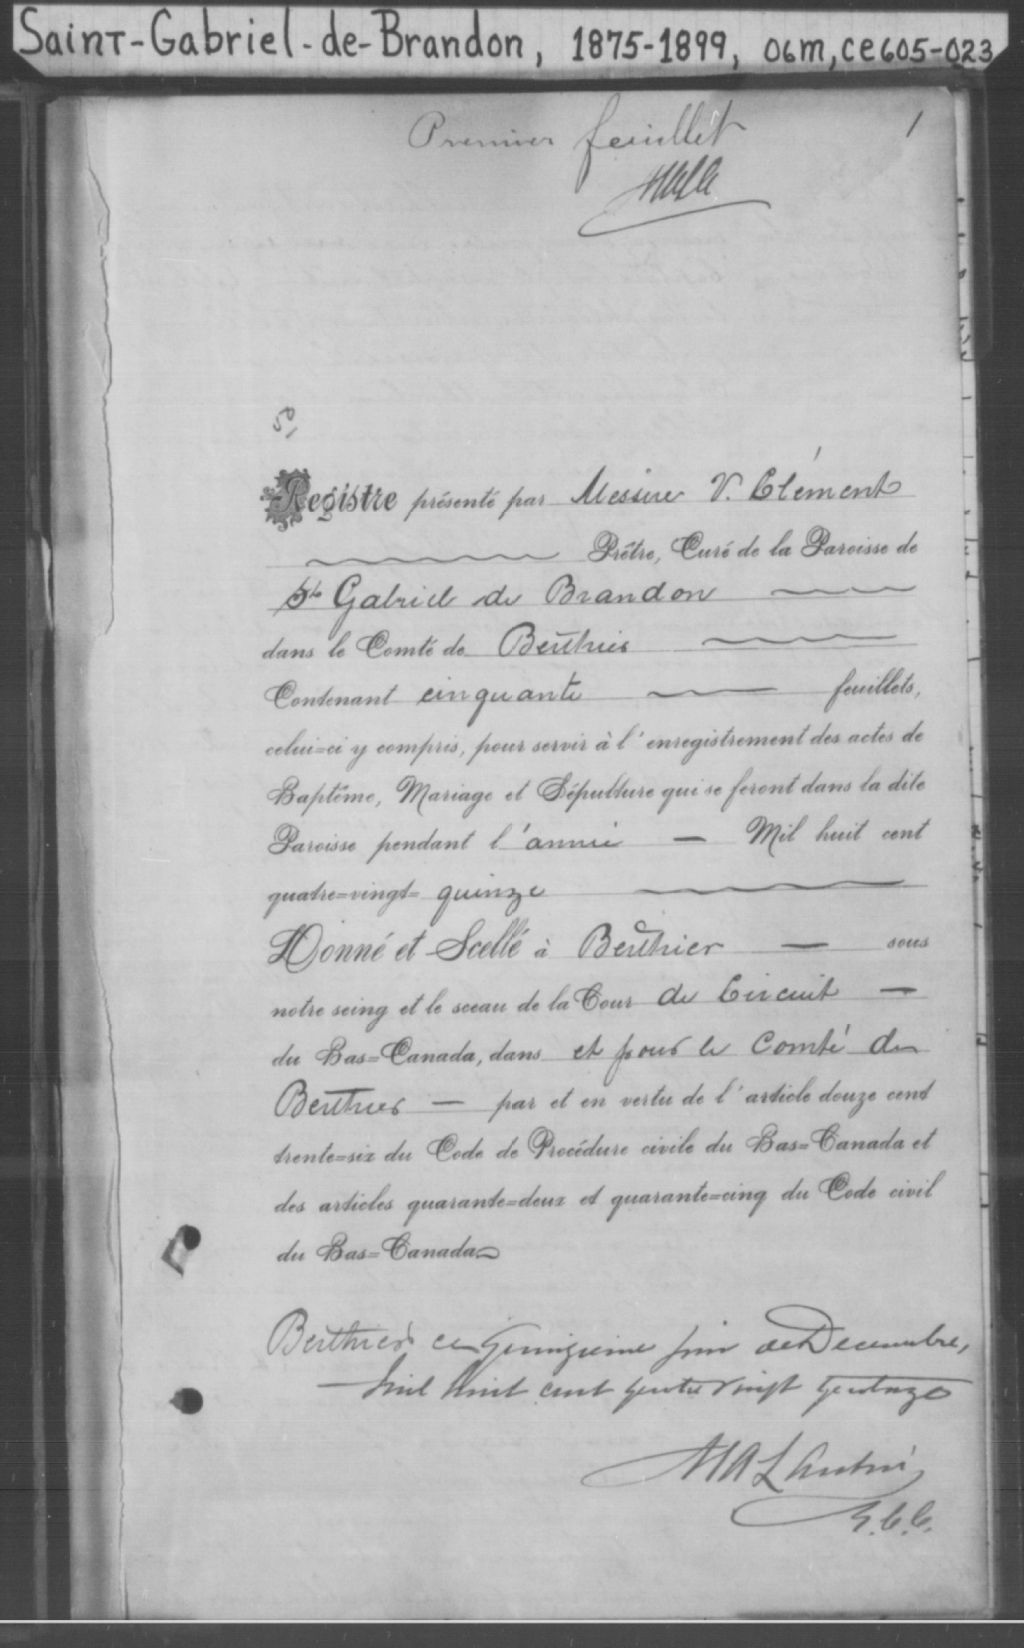 Saint-Gabriel-de-Brandon, 1875-1899, 06m, ce605-023
Premier feuillet 1
Registre présenté par Messire V. Clément
Prêtre, Curé de la Paroisse de
St Gabriel de Brandon
dans le Comté de Berthier
Contenant cinquante feuillets,
celui=ci y compris, pour servir à l'enregistrement des actes de
Baptême, Mariage et Sépulture qui se feront dans la dite
Paroisse pendant l'année — Mil huit cent
quatre=vingt= quinze
Donné et Scellé à Berthier — sous
notre seing et le sceau de la Cour de Circuit —
du Bas=Canada, dans et pour le Comté de
Berthier — par et en vertu de l'article douze cent
trente=six du Code de Procédure civile du Bas=Canada et
des articles quarante=deux et quarante=cinq du Code civil
du Bas=Canada
Berthier ce quinzième jour de Decembre,
mil huit cent quatre vingt quatorze
G.C.C.